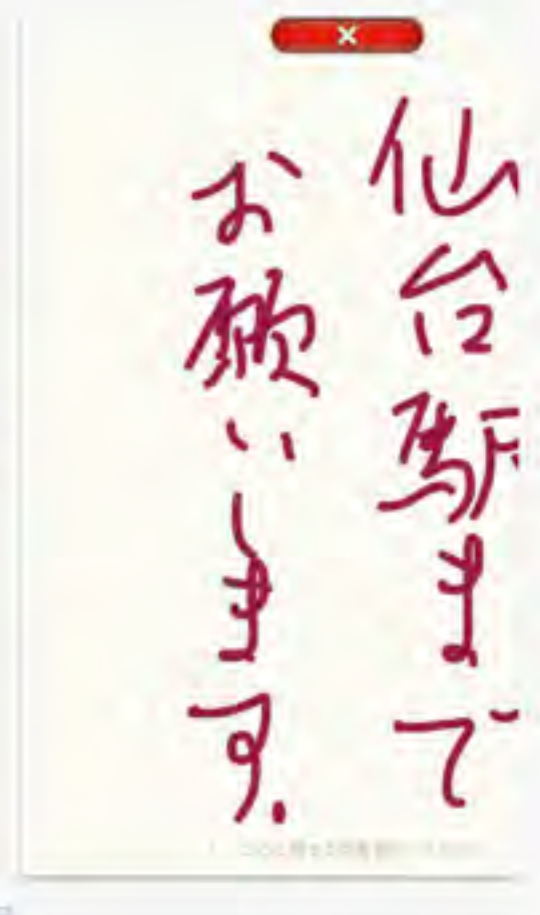 仙台駅まで
お願いします.